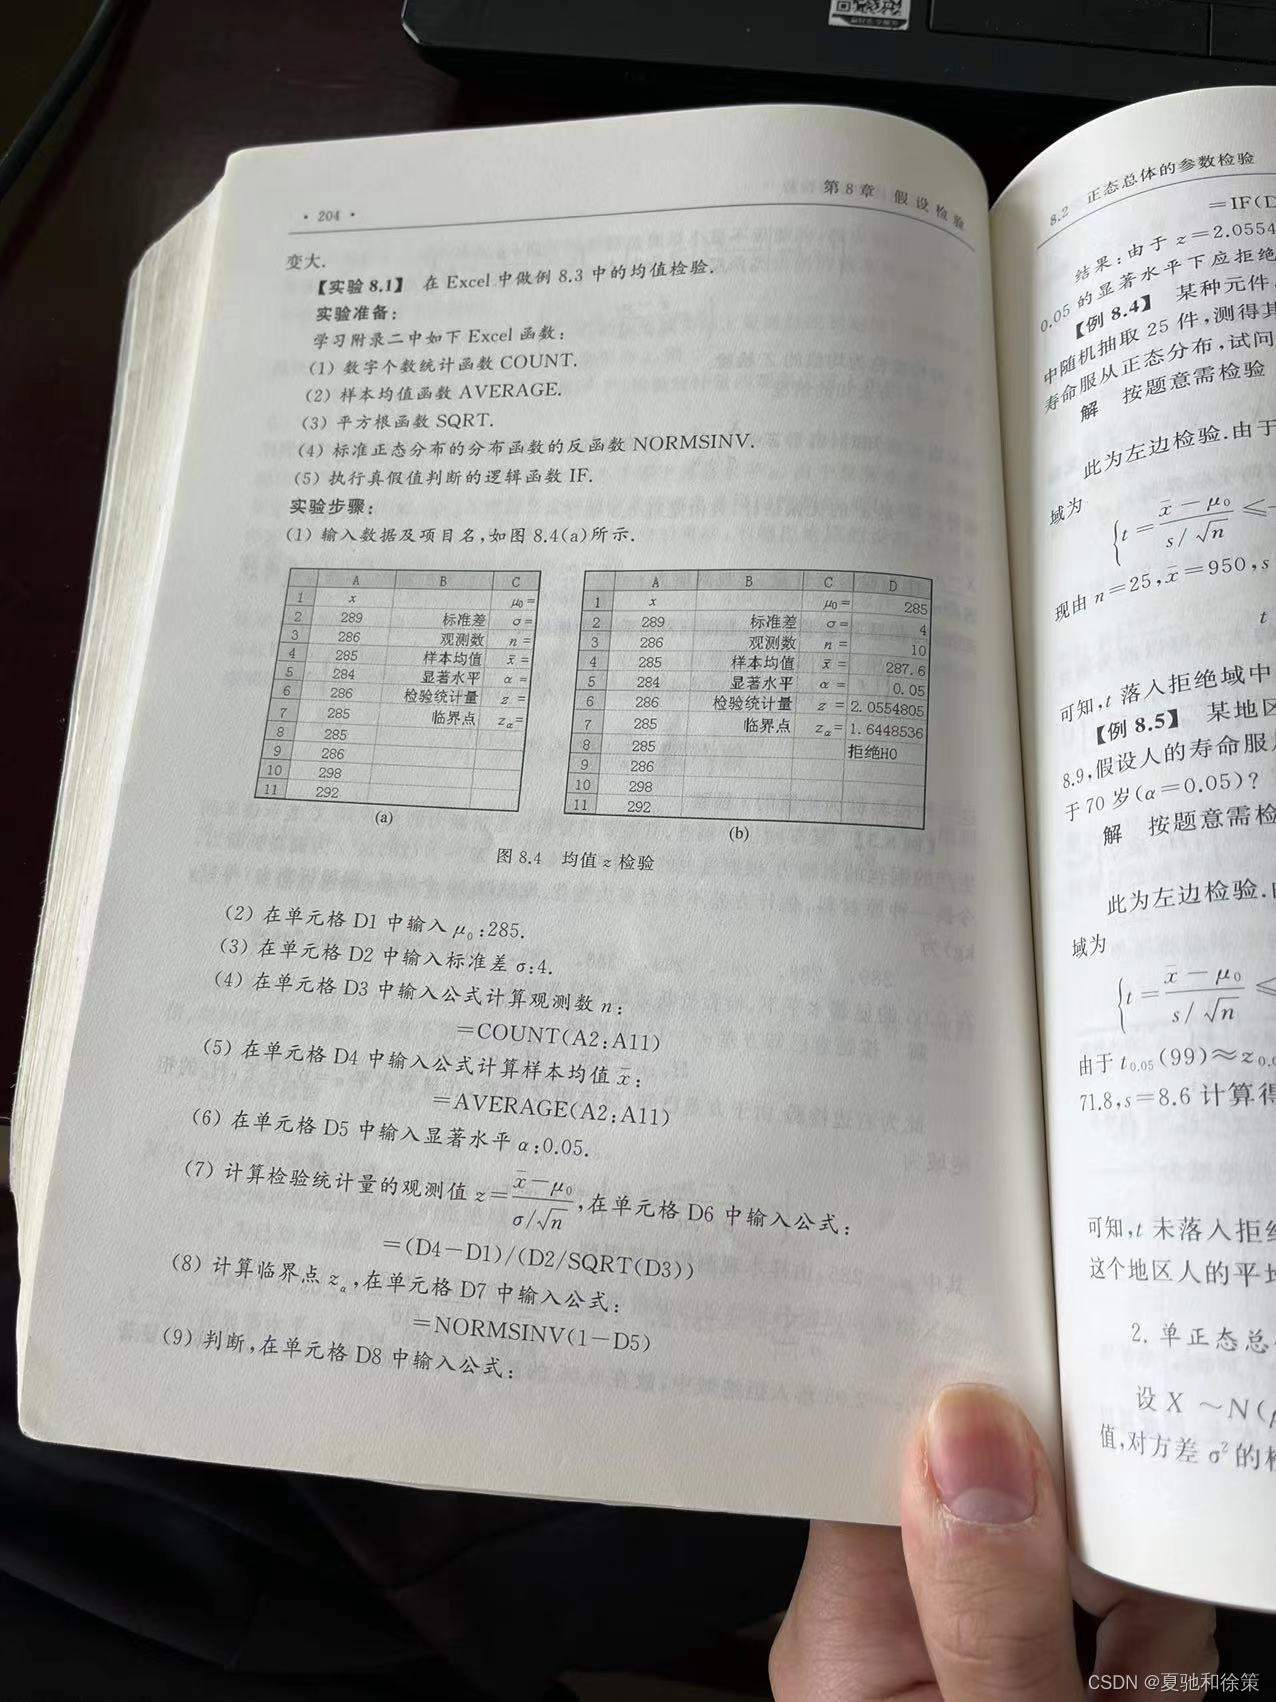 · 204 ·
第 8 章 假 设 检 验
变大.
【实验 8.1】 在 Excel 中做例 8.3 中的均值检验.
实验准备:
学习附录二中如下 Excel 函数:
(1) 数字个数统计函数 COUNT.
(2) 样本均值函数 AVERAGE.
(3) 平方根函数 SQRT.
(4) 标准正态分布的分布函数的反函数 NORMSINV.
(5) 执行真假值判断的逻辑函数 IF.
实验步骤:
(1) 输入数据及项目名,如图 8.4(a)所示.
A B C
1 x μ₀=
2 289 标准差 σ=
3 286 观测数 n=
4 285 样本均值 x̄=
5 284 显著水平 α=
6 286 检验统计量 z=
7 285 临界点 zα=
8 285
9 286
10 298
11 292
(a)
A B C D
1 x μ₀= 285
2 289 标准差 σ= 4
3 286 观测数 n= 10
4 285 样本均值 x̄= 287.6
5 284 显著水平 α= 0.05
6 286 检验统计量 z= 2.0554805
7 285 临界点 zα= 1.6448536
8 285 拒绝H0
9 286
10 298
11 292
(b)
图 8.4 均值 z 检验
(2) 在单元格 D1 中输入 μ₀:285.
(3) 在单元格 D2 中输入标准差 σ:4.
(4) 在单元格 D3 中输入公式计算观测数 n:
=COUNT(A2:A11)
(5) 在单元格 D4 中输入公式计算样本均值 x̄:
=AVERAGE(A2:A11)
(6) 在单元格 D5 中输入显著水平 α:0.05.
(7) 计算检验统计量的观测值 z=(x̄-μ₀)/(σ/√n),在单元格 D6 中输入公式:
=(D4-D1)/(D2/SQRT(D3))
(8) 计算临界点 zα,在单元格 D7 中输入公式:
=NORMSINV(1-D5)
(9) 判断,在单元格 D8 中输入公式:
8.2 正态总体的参数检验
=IF(D
结果:由于 z=2.0554
0.05 的显著水平下应拒绝
【例 8.4】 某种元件,
中随机抽取 25 件,测得其
寿命服从正态分布,试问
解 按题意需检验
此为左边检验.由于
域为
{t=(x̄-μ₀)/(s/√n)≤-
现由 n=25,x̄=950,s
t
可知,t 落入拒绝域中
【例 8.5】 某地区
8.9,假设人的寿命服
于 70 岁(α=0.05)?
解 按题意需检
此为左边检验.
域为
{t=(x̄-μ₀)/(s/√n)≤
由于 t₀.₀₅(99)≈z₀.₀
71.8,s=8.6 计算得
可知,t 未落入拒绝
这个地区人的平均
2. 单正态总
设 X ～N(μ
值,对方差 σ² 的检
CSDN @夏驰和徐策